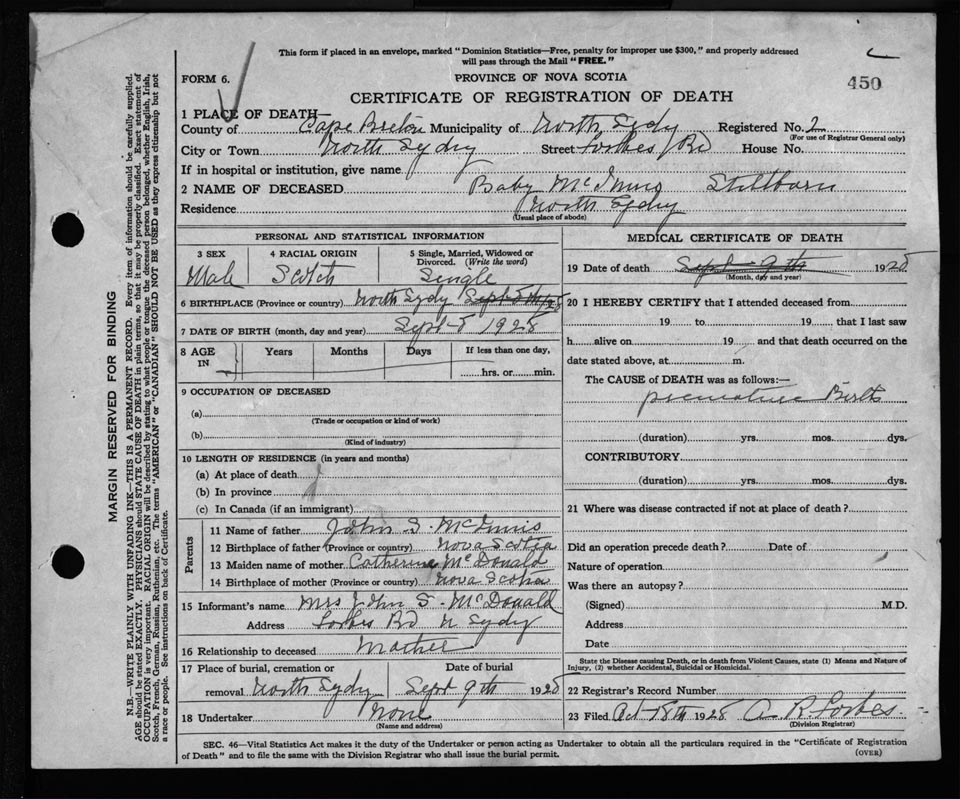 This form if placed in an envelope, marked "Dominion Statistics—Free, penalty for improper use $300," and properly addressed
will pass through the Mail "FREE."
FORM 6.
PROVINCE OF NOVA SCOTIA
450
CERTIFICATE OF REGISTRATION OF DEATH
1 PLACE OF DEATH
County of Cape Breton Municipality of North Sydny Registered No. 2
(For use of Registrar General only)
City or Town North Sydny Street Forbes Rd House No.
If in hospital or institution, give name
2 NAME OF DECEASED Baby McInnis Stillborn
Residence North Sydny
(Usual place of abode)
PERSONAL AND STATISTICAL INFORMATION
3 SEX 4 RACIAL ORIGIN 5 Single, Married, Widowed or Divorced. (Write the word)
Male Scotch Single
6 BIRTHPLACE (Province or country) North Sydny
7 DATE OF BIRTH (month, day and year) Sept 8 1928
8 AGE IN Years Months Days If less than one day,
hrs. or min.
9 OCCUPATION OF DECEASED
(a)
(Trade or occupation or kind of work)
(b)
(Kind of industry)
10 LENGTH OF RESIDENCE (in years and months)
(a) At place of death
(b) In province
(c) In Canada (if an immigrant)
Parents
11 Name of father John S. McInnis
12 Birthplace of father (Province or country) Nova Scotia
13 Maiden name of mother Catherine McDonald
14 Birthplace of mother (Province or country) Nova Scotia
15 Informant's name Mrs John S. McDonald
Address Forbes Rd N Sydny
16 Relationship to deceased Mother
17 Place of burial, cremation or removal Date of burial
North Sydny Sept 9th 1928
18 Undertaker None
(Name and address)
MEDICAL CERTIFICATE OF DEATH
19 Date of death Sept 9th 1928
(Month, day and year)
20 I HEREBY CERTIFY that I attended deceased from
19 to 19, that I last saw
h alive on 19 and that death occurred on the
date stated above, at m.
The CAUSE of DEATH was as follows:—
premature Birth
(duration) yrs. mos. dys.
CONTRIBUTORY
(duration) yrs. mos. dys.
21 Where was disease contracted if not at place of death?
Did an operation precede death? Date of
Nature of operation
Was there an autopsy?
(Signed) M.D.
Address
Date
State the Disease causing Death, or in death from Violent Causes, state (1) Means and Nature of
Injury, (2) whether Accidental, Suicidal or Homicidal.
22 Registrar's Record Number
23 Filed Oct 18th 1928 A. R. Forbes.
(Division Registrar)
SEC. 46—Vital Statistics Act makes it the duty of the Undertaker or person acting as Undertaker to obtain all the particulars required in the "Certificate of Registration
of Death" and to file the same with the Division Registrar who shall issue the burial permit.
(OVER)
MARGIN RESERVED FOR BINDING
N.B.—WRITE PLAINLY WITH UNFADING INK—THIS IS A PERMANENT RECORD. Every item of information should be carefully supplied.
AGE should be stated EXACTLY. PHYSICIANS should STATE CAUSE OF DEATH in plain terms, so that it may be properly classified. Exact statement of
OCCUPATION is very important. RACIAL ORIGIN will be described by stating to what people or tongue the deceased person belonged, whether English, Irish,
Scotch, French, German, Russian, Ruthenian, etc. The terms "AMERICAN" or "CANADIAN" SHOULD NOT BE USED as they express citizenship but not
a race or people. See instructions on back of Certificate.